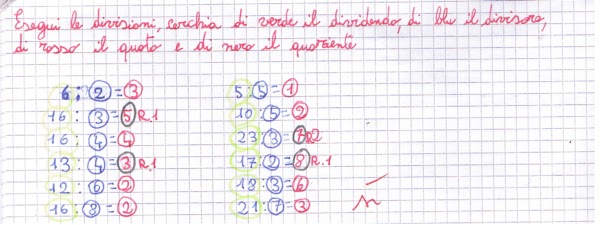 Esegui le divisioni, cerchia di verde il dividendo, di blu il divisore,
di rosso il quoto e di nero il quoziente
6 : 2 = 3
16 : 3 = 5 R.1
16 : 4 = 4
13 : 4 = 3 R.1
12 : 6 = 2
16 : 8 = 2
5 : 5 = 1
10 : 5 = 2
23 : 3 = 7 R2
17 : 2 = 8 R.1
18 : 3 = 6
21 : 7 = 3